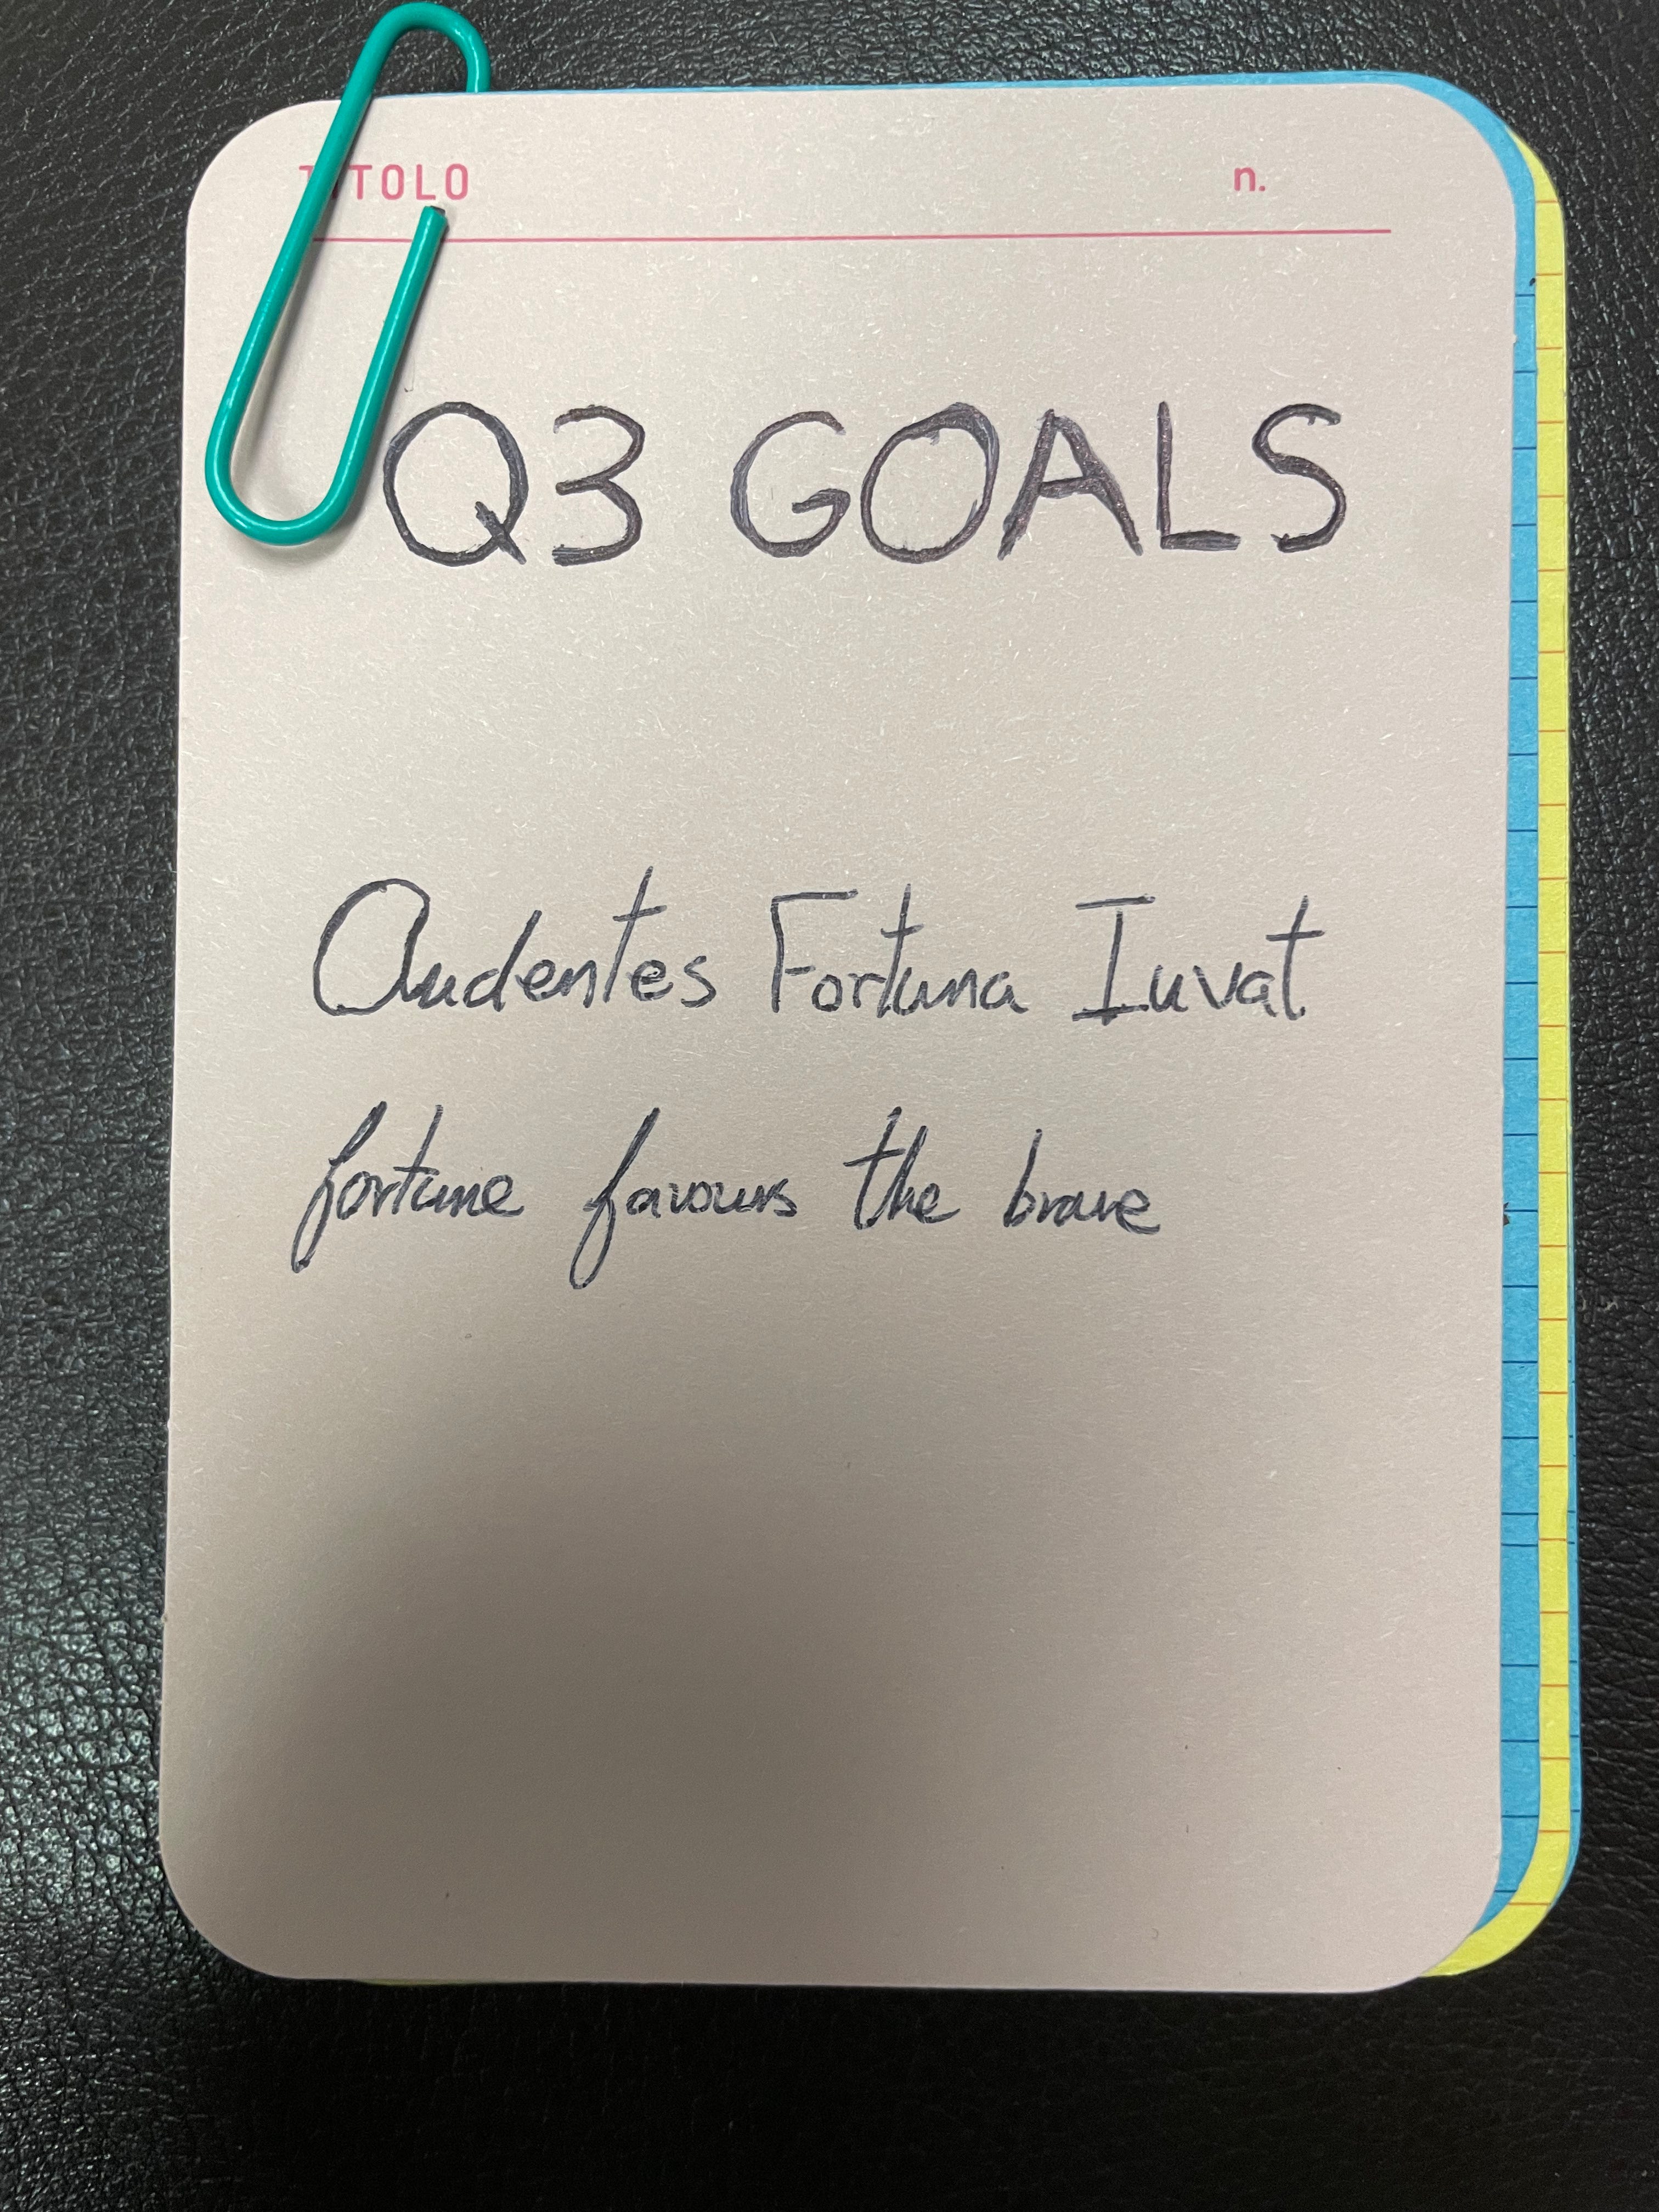 TITOLO n.
Q3 GOALS
Audentes Fortuna Iuvat
fortune favours the brave